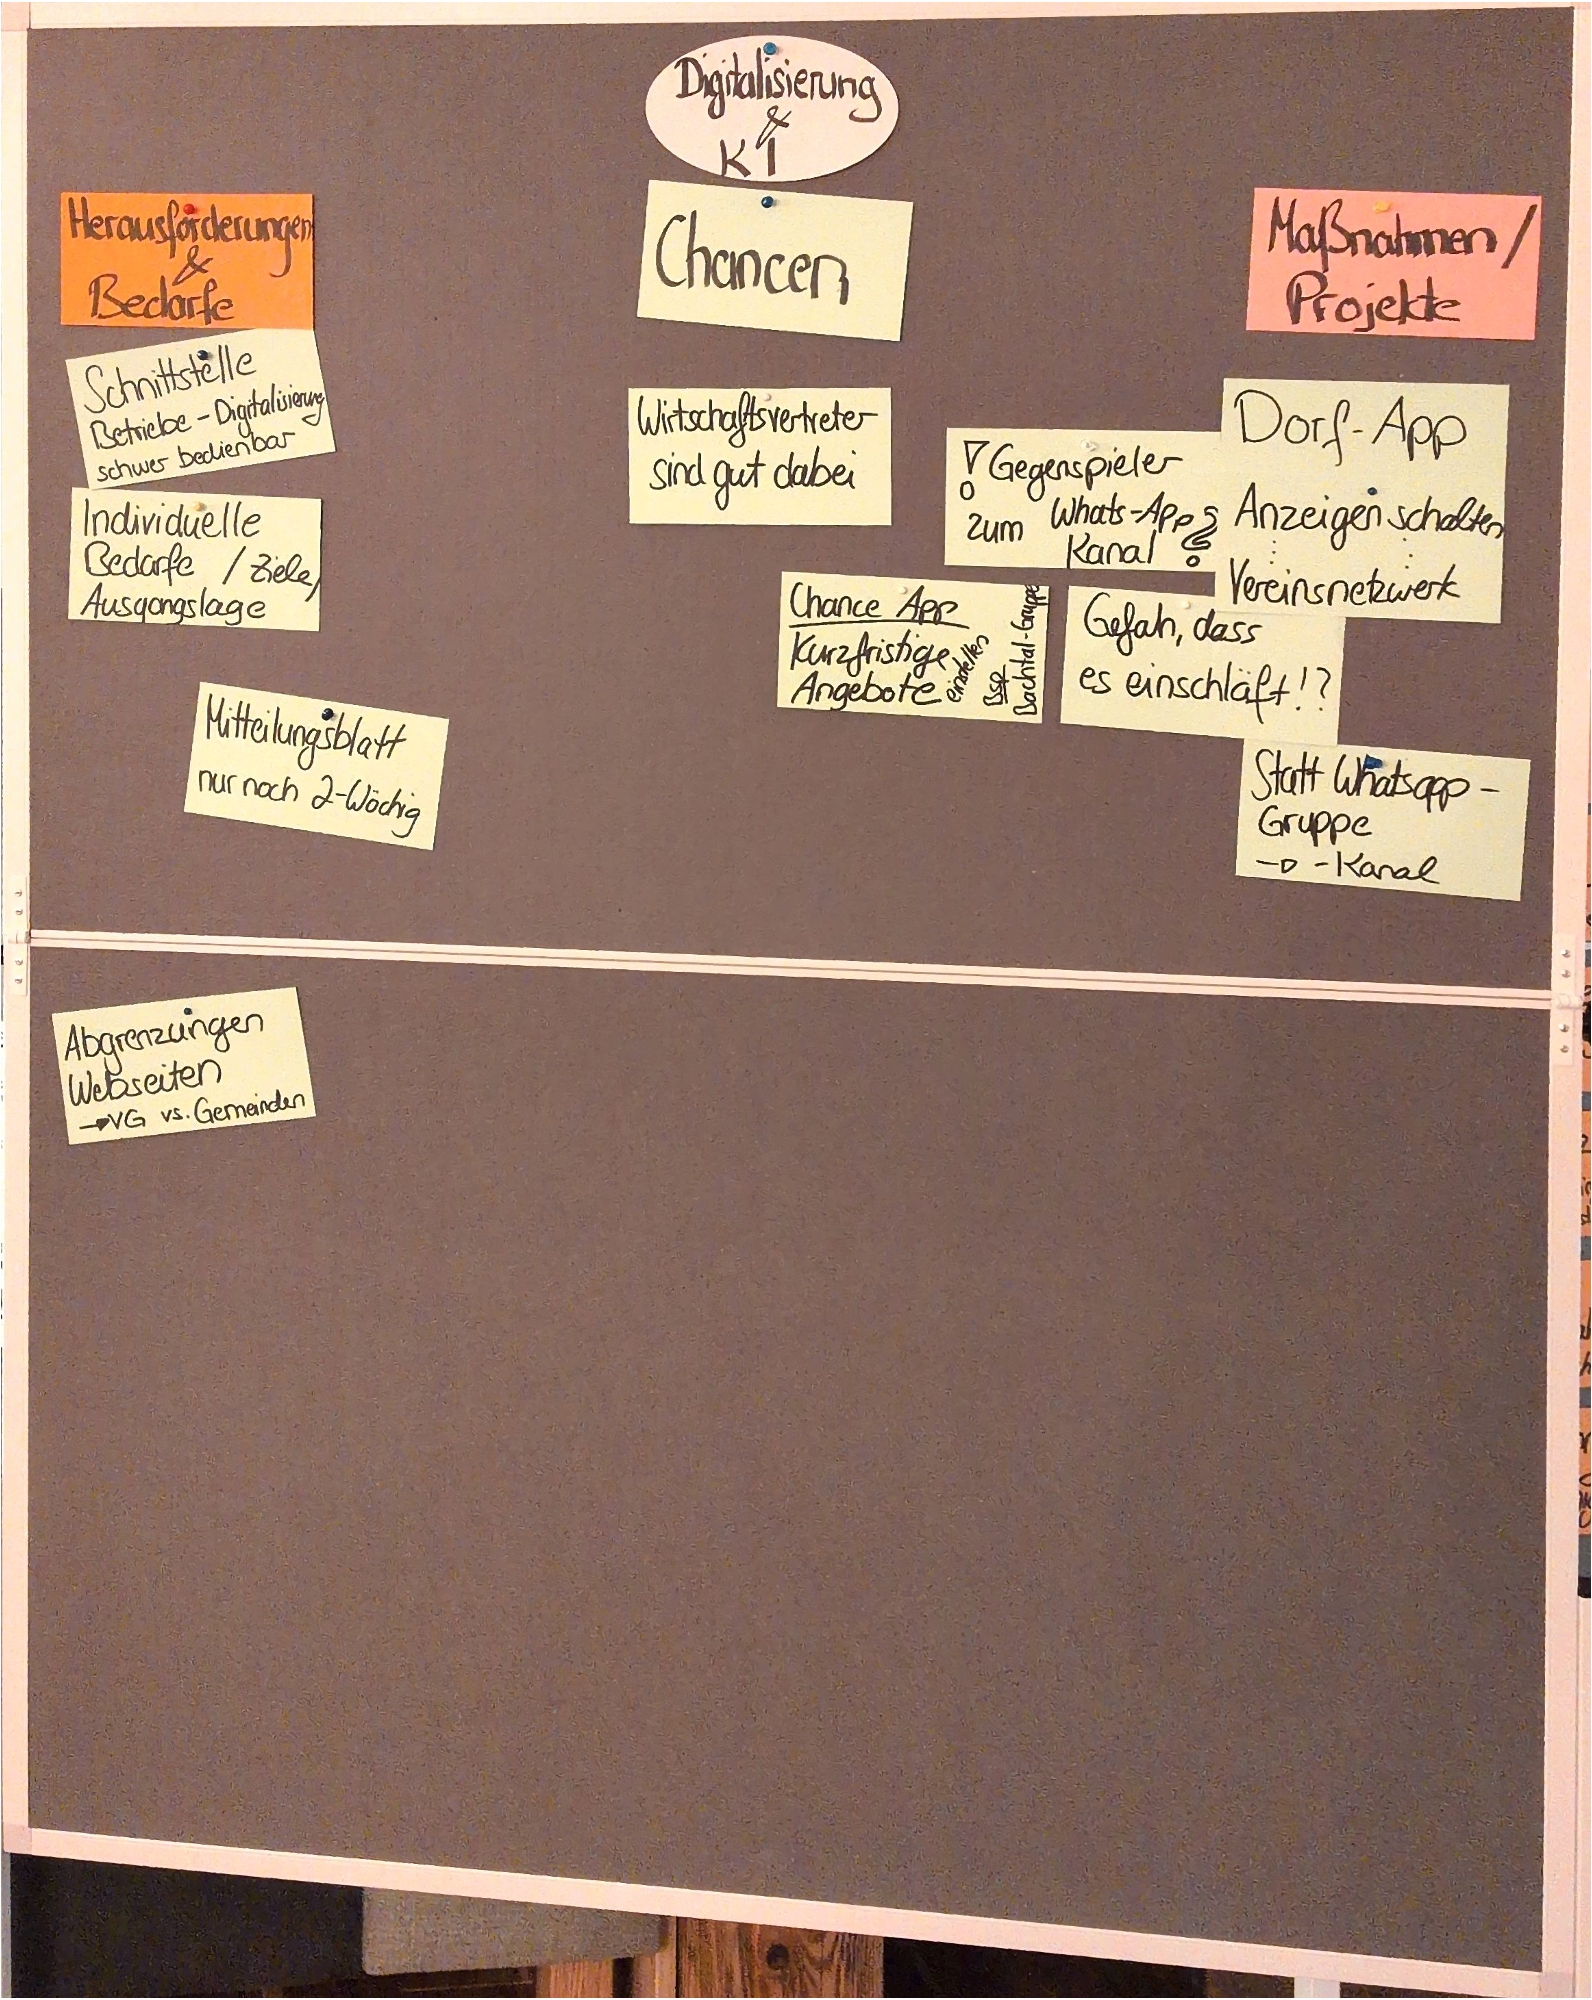 Digitalisierung
&
KI
Herausforderungen
&
Bedarfe
Schnittstelle
Betriebe - Digitalisierung
schwer bedienbar
Individuelle
Bedarfe / Ziele,
Ausgangslage
Mitteilungsblatt
nur noch 2-Wöchig
Abgrenzungen
Webseiten
→ VG vs. Gemeinden
Chancen
Wirtschaftsvertreter
sind gut dabei
! Gegenspieler
zum Whats-App
Kanal ?
Chance App
Kurzfristige
Angebote
einstellen
Bsp
Bachtal-Gruppe
Maßnahmen /
Projekte
Dorf-App
Anzeigen schalten
Vereinsnetzwerk
Gefah, dass
es einschläft!?
Statt Whatsapp-
Gruppe
→ -Kanal